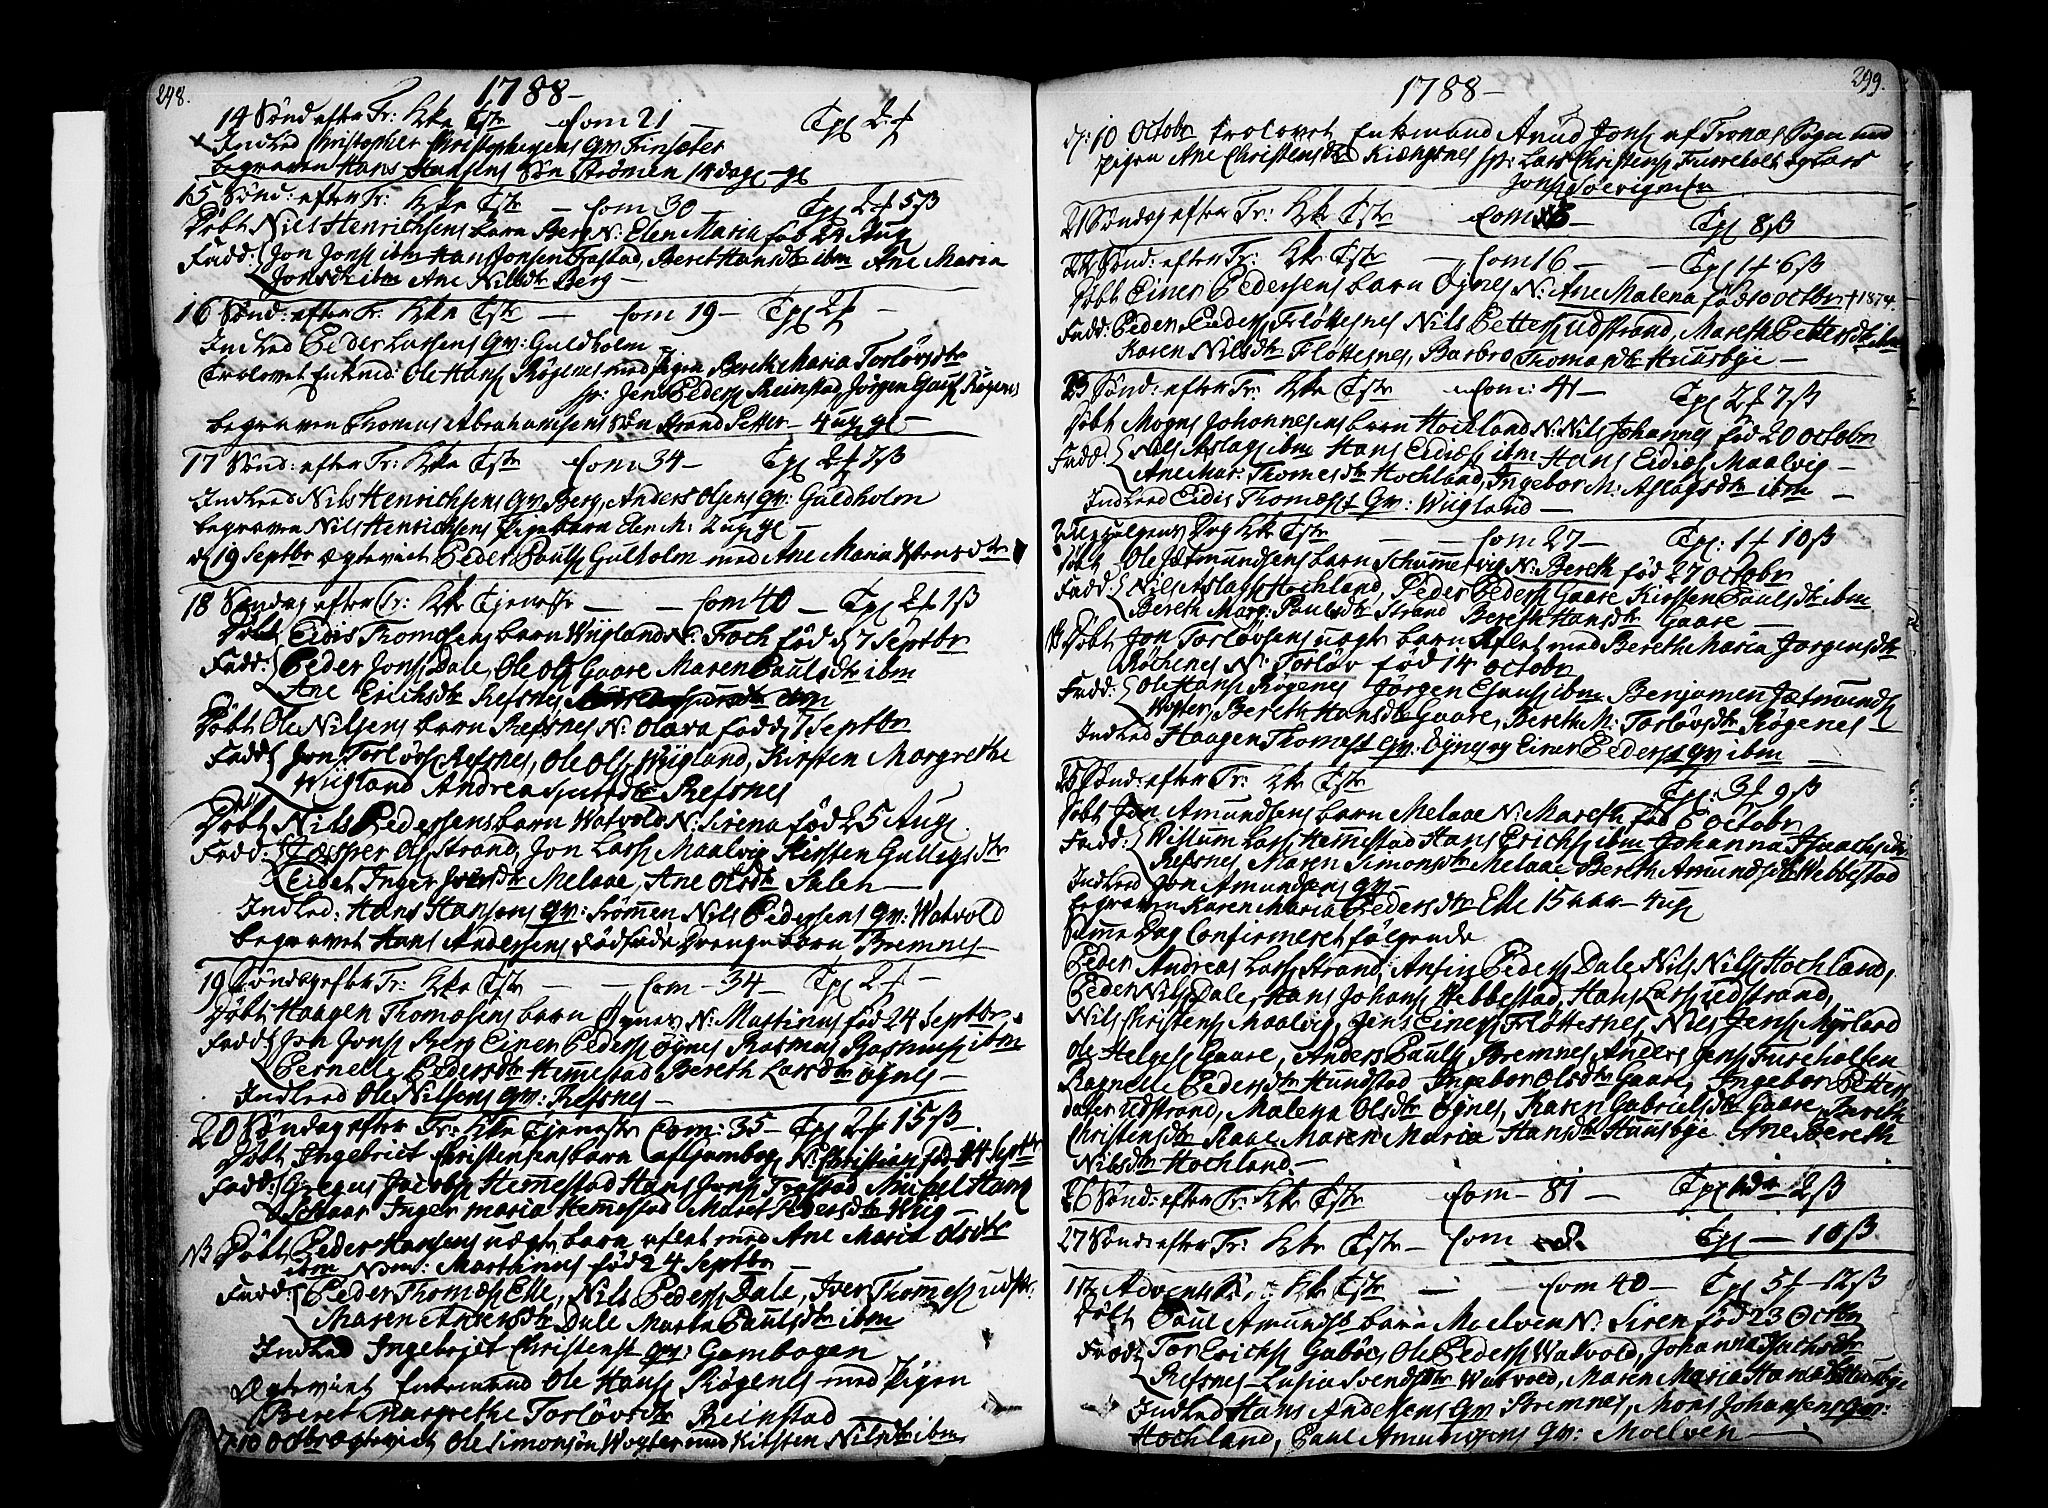 248.
1788 –
14 Sønd efter Tr: Kke Tstr – Com 21 – Tpl 2 f
Indled Christopher Christophersens qv: Finsæter
begraven Hans Hansens Søn Strømen 14 dage gl
15 Sønd: efter Tr: Kke Tstr – Com 30 – Tpl 2 f 5 ß
Døbt Nils Henrichsens barn Berg N: Elen Maria fød 24 Aug
Fadd: Jon Jons ibm Hans Jonsen Trastad, Beret Hansdtr ibm Ane Maria
Jonsdtr ibm Ane Nilsdtr Berg –
16 Sønd: efter Tr. Kke Tstr – Com 19 – Tpl 2 f –
Indled Peder Larsens qv: Guldholm –
Trolovet Enkmd: Ole Hans Røgenes med Pigen Bereth Maria Torløvsdtr
sp: Jens Peders Reinstad, Jørgen Røgenes
begraven Thomas Abrahamsens Søn Strand Petter – 4 ug gl –
17 Sønd: efter Tr: Kke Tstr Com 34 – Tpl 2 f 7 ß
Indled Nils Henrichsens qv Berg, Anders Olsens qv: Guldholm
begraven Nils Henrichsens Pigebarn Elen M: 2 ug gl –
d 19 Septbr ægteviet Peder Pauls Gulholm med Ane Maria
18 Søndag efter Tr: Kke Tjeneste – – Com 40 – Tpl 2 f 1 ß
Døbt Eidis Thomæsens barn Wiigland N: Foch fød d 7 Septbr
Fadd: Peder Jons Dale, Ole Ols Gaare Maren Paulsdtr ibm
Ane Erichsdtr Refsnes
Døbt Ole Nilsens barn Refsnes N: Olava fød d 7 Septbr
Fadd Jon Torløvs Refsnes, Ole Ols Wiigland, Kirsten Margrethe
Wiigland Andrea Refsnes
Døbt Nils Pedersens barn Watvold N: Sirena fød 25 Aug
Fadd: Jesper Ols Strand, Jon Lars Maalvig Kirsten Gullagsdtr
Eidet Inger Melaae, Ane Olsdtr Salen –
Indled: Hans Hansens qv: Strømmen Nils Pedersens qv: Watvold
begravet Hans Andersens dødfødde Drengebarn Bremnes –
19 Søndag efter Tr: Kke Tstr – – Com – 34 – Tpl 2 f –
Døbt Haagen Thomæsens barn Øynes N: Martinus fød 24 Septbr
Fadd Jon Jons Berg Einer Peders Øynes Rasmus Rasmus ibm
Pernelle Pedersdtr Hemmestad Bereth Larsdtr Øynes –
Indled Ole Nilsens qv: Refsnes –
20 Søndag efter Tr: Kke Tjeneste Com: 35 – Tpl 2 f 15 ß
Døbt Ingebriet Christensens barn N: Christian fød 24 Septbr
Fadd: Gregus Jacobs Hemmestad Hans Jons Trastad
Inger Maria Hemmestad Maret Pedersdtr Wiig –
NB Døbt Peder Hansens uægte barn aflet med Ane Maria Olsdtr
ibm Navn: Martinus fød 24 Septbr –
Fadd: Peder Thomæs Elle, Nils Peders Dale, Iver Thomæs
Maren Andersdtr Dale Marta Paulsdtr ibm
Indled Ingebriet Christens qv: Gambogen
Ægteviet Enkemand Ole Hans Røgenes – med Pigen
Beret Margrethe Torløvsdtr Reinstad
d. 10 Octbr Ægteviet Ole Simonsøn Wogter med Kirsten Nilsdtr ibm
299.
1788 –
d: 10 Octobr Trolovet Enkemand Anud Jons af Tronæs Sogn med
pigen Ane Christensdtr Kiengsnes sp: Lars Christens Fureholt og Lars
Jons
21 Søndag efter Tr: Kke Tstr Com – Tpl 8 ß
22 Sønd: efter Tr: Kke Tstr – Com 16 – – Tpl 1 f 6 ß
Døbt Einer Pedersens barn Øynes N: Ane Malena fød 10 Octbr † 1874.
Fadd: Peder Peders Fløttesnes Nils Petters Udstrand, Mareth Pettersdtr ibm
Karen Nilsdtr Fløttesnes, Barbro Thomasdtr Huusbye –
23 Sønd: efter Tr: Kke Tstr – Com: 41 – Tpl 2 f 7 ß
Døbt Mogns Johannesens barn Hochland N: Nils Johannes fød 20 Octobr
Fadd: Nils Aslags ibm Hans Eidises ibm Hans Eidises Maalvig –
Ane Mar: Thomesdtr Hochland, Ingebor M: Aslagsdtr ibm –
Indled Eidis Thomæs qv: Wiigland –
Dag Kke Tstr – – Com 27 – Tpl: 1 f 10 ß
Døbt Ole barn N: Bereth fød 27 Octobr
Fadd: Nils Aslags Hochland, Peder Peders Gaare Kirsten Paulsdtr ibm
Bereth Marg: Paulsdtr Strand Bereth Hansdtr Gaare –
NB Døbt Jon Torløvsens uægte barn aflet med Bereth Maria Jørgensdtr
Røchenes N: Torløv fød 14 Octobr
Fadd: Ole Hans Røgenes Jørgen ibm Benjamen
Wogter, Bereth Hansdtr Gaare, Bereth M: Torløvsdtr Røgenes –
Indled Haagen Thomes qv: Øynes og Einer Peders qv ibm –
25 Sønd: efter Tr: Kke Tstr Tpl: 3 f 9 ß
Døbt Jon Amundsens barn Melaae N: Mareth fød Octobr
Fadd: Lars Hemmestad Hans Erichs ibm Johanna
Refsnes Maren Simonsdtr Melaae Bereth Amundsdtr Webbestad
Indled Jon Amundsens qv –
begraven Karen Maria Pedersdtr Elle 15 aar – 4 ug
Samme Dag Confirmeret følgende
Peder Andreas Lars Strand, Anfin Peders Dale Nils Nils Hochland,
Peder Nils Dale, Hans Johans Webbestad, Hans Lars Udstrand,
Nils Christens Maalvig, Jens Einers Fløttesnes, Nils Jens Myrland
Ole Helges Gaare, Anders Pauls Bremnes Anders Jens Fureholten
Ragnelle Pedersdtr Hundstad Ingebor Olsdtr Gaare, Ingebor Petter
dater Udstrand, Malena Olsdtr Øynes, Karen Gabrielsdtr Gaare, Bereth
Christensdtr Raae Maren Maria Hansdtr Huusbye Ane Bereth
Nilsdtr Hochland –
26 Sønd: efter Tr: Kke Tstr Com – 81 – Tpl 2 ß
27 Sønd: efter Tr: Kke Tstr – Com – 8. Tpl – 10 ß
1te Advent Kke Tstr – – Com 40 – Tpl 5 f – 12 ß
Døbt Paul Amunds barn Moelven N: Siren fød 23 Octbr
Fadd: Tor Erichs Gaböe, Ole Peders Watvold, Johanna Isachsdtr
Refsnes – Lusia Svendsdtr Watvold, Maren Maria Hansdtr Huusbye
Indled Hans Andersens qv Bremnes, Mons Johansens qv:
Hochland, Paul Amundsens qv: Moelven –